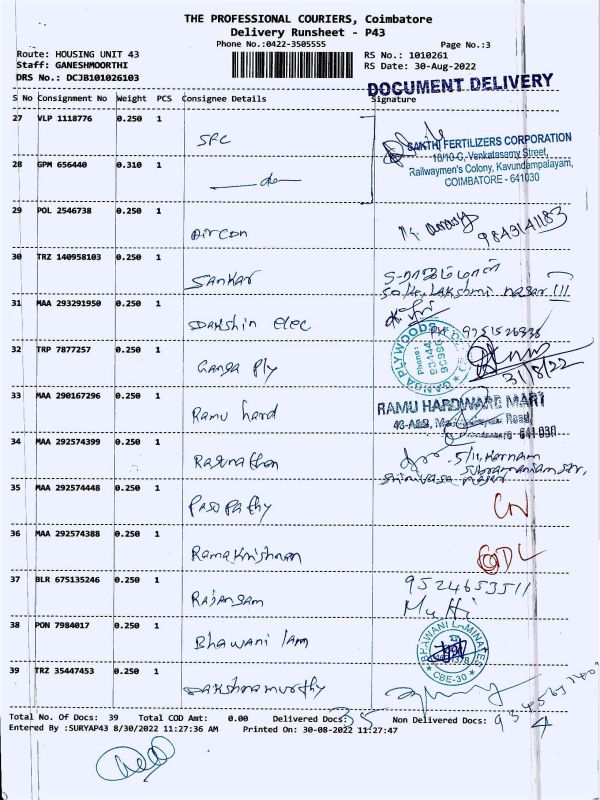 THE PROFESSIONAL COURIERS, Coimbatore
Delivery Runsheet - P43
Phone No.:0422-3505555
Page No.:3
Route: HOUSING UNIT 43
RS No.: 1010261
Staff: GANESHMOORTHI
RS Date: 30-Aug-2022
DRS No.: DCJB101026103
DOCUMENT DELIVERY
S No Consignment No Weight PCS Consignee Details Signature
27 VLP 1118776 0.250 1
SFC
SAKTHI FERTILIZERS CORPORATION
10/10-C, Venkatasamy Street,
Railwaymen's Colony, Kavundampalayam,
COIMBATORE - 641030
28 GPM 656440 0.310 1
do
29 POL 2546738 0.250 1
Aircon
9843141183
30 TRZ 140958103 0.250 1
Sankar
50/4, Lakshmi nagar III
31 MAA 293291950 0.250 1
Dakshin elec
PH: 9751526338
32 TRP 7877257 0.250 1
Ganga Ply
GANGA PLYWOODS
Phone:
31/8/22
33 MAA 290167296 0.250 1
Ramu hard
RAMU HARDWARE MART
Road,
34 MAA 292574399 0.250 1
Ragunathan
5/11, Karnam
Subramaniam
Srinivasa nagar
35 MAA 292574448 0.250 1
Pasopathy
CN
36 MAA 292574388 0.250 1
Ramakrishnan
37 BLR 675135246 0.250 1
Rajangam
9524653511
Muthi
38 PON 7984017 0.250 1
Bhawani lam
BHAWANI LAMINATES
CBE-30
39 TRZ 35447453 0.250 1
Dakshnamurthy
Total No. Of Docs: 39 Total COD Amt: 0.00 Delivered Docs: 35 Non Delivered Docs: 4
Entered By :SURYAP43 8/30/2022 11:27:36 AM Printed On: 30-08-2022 11:27:47